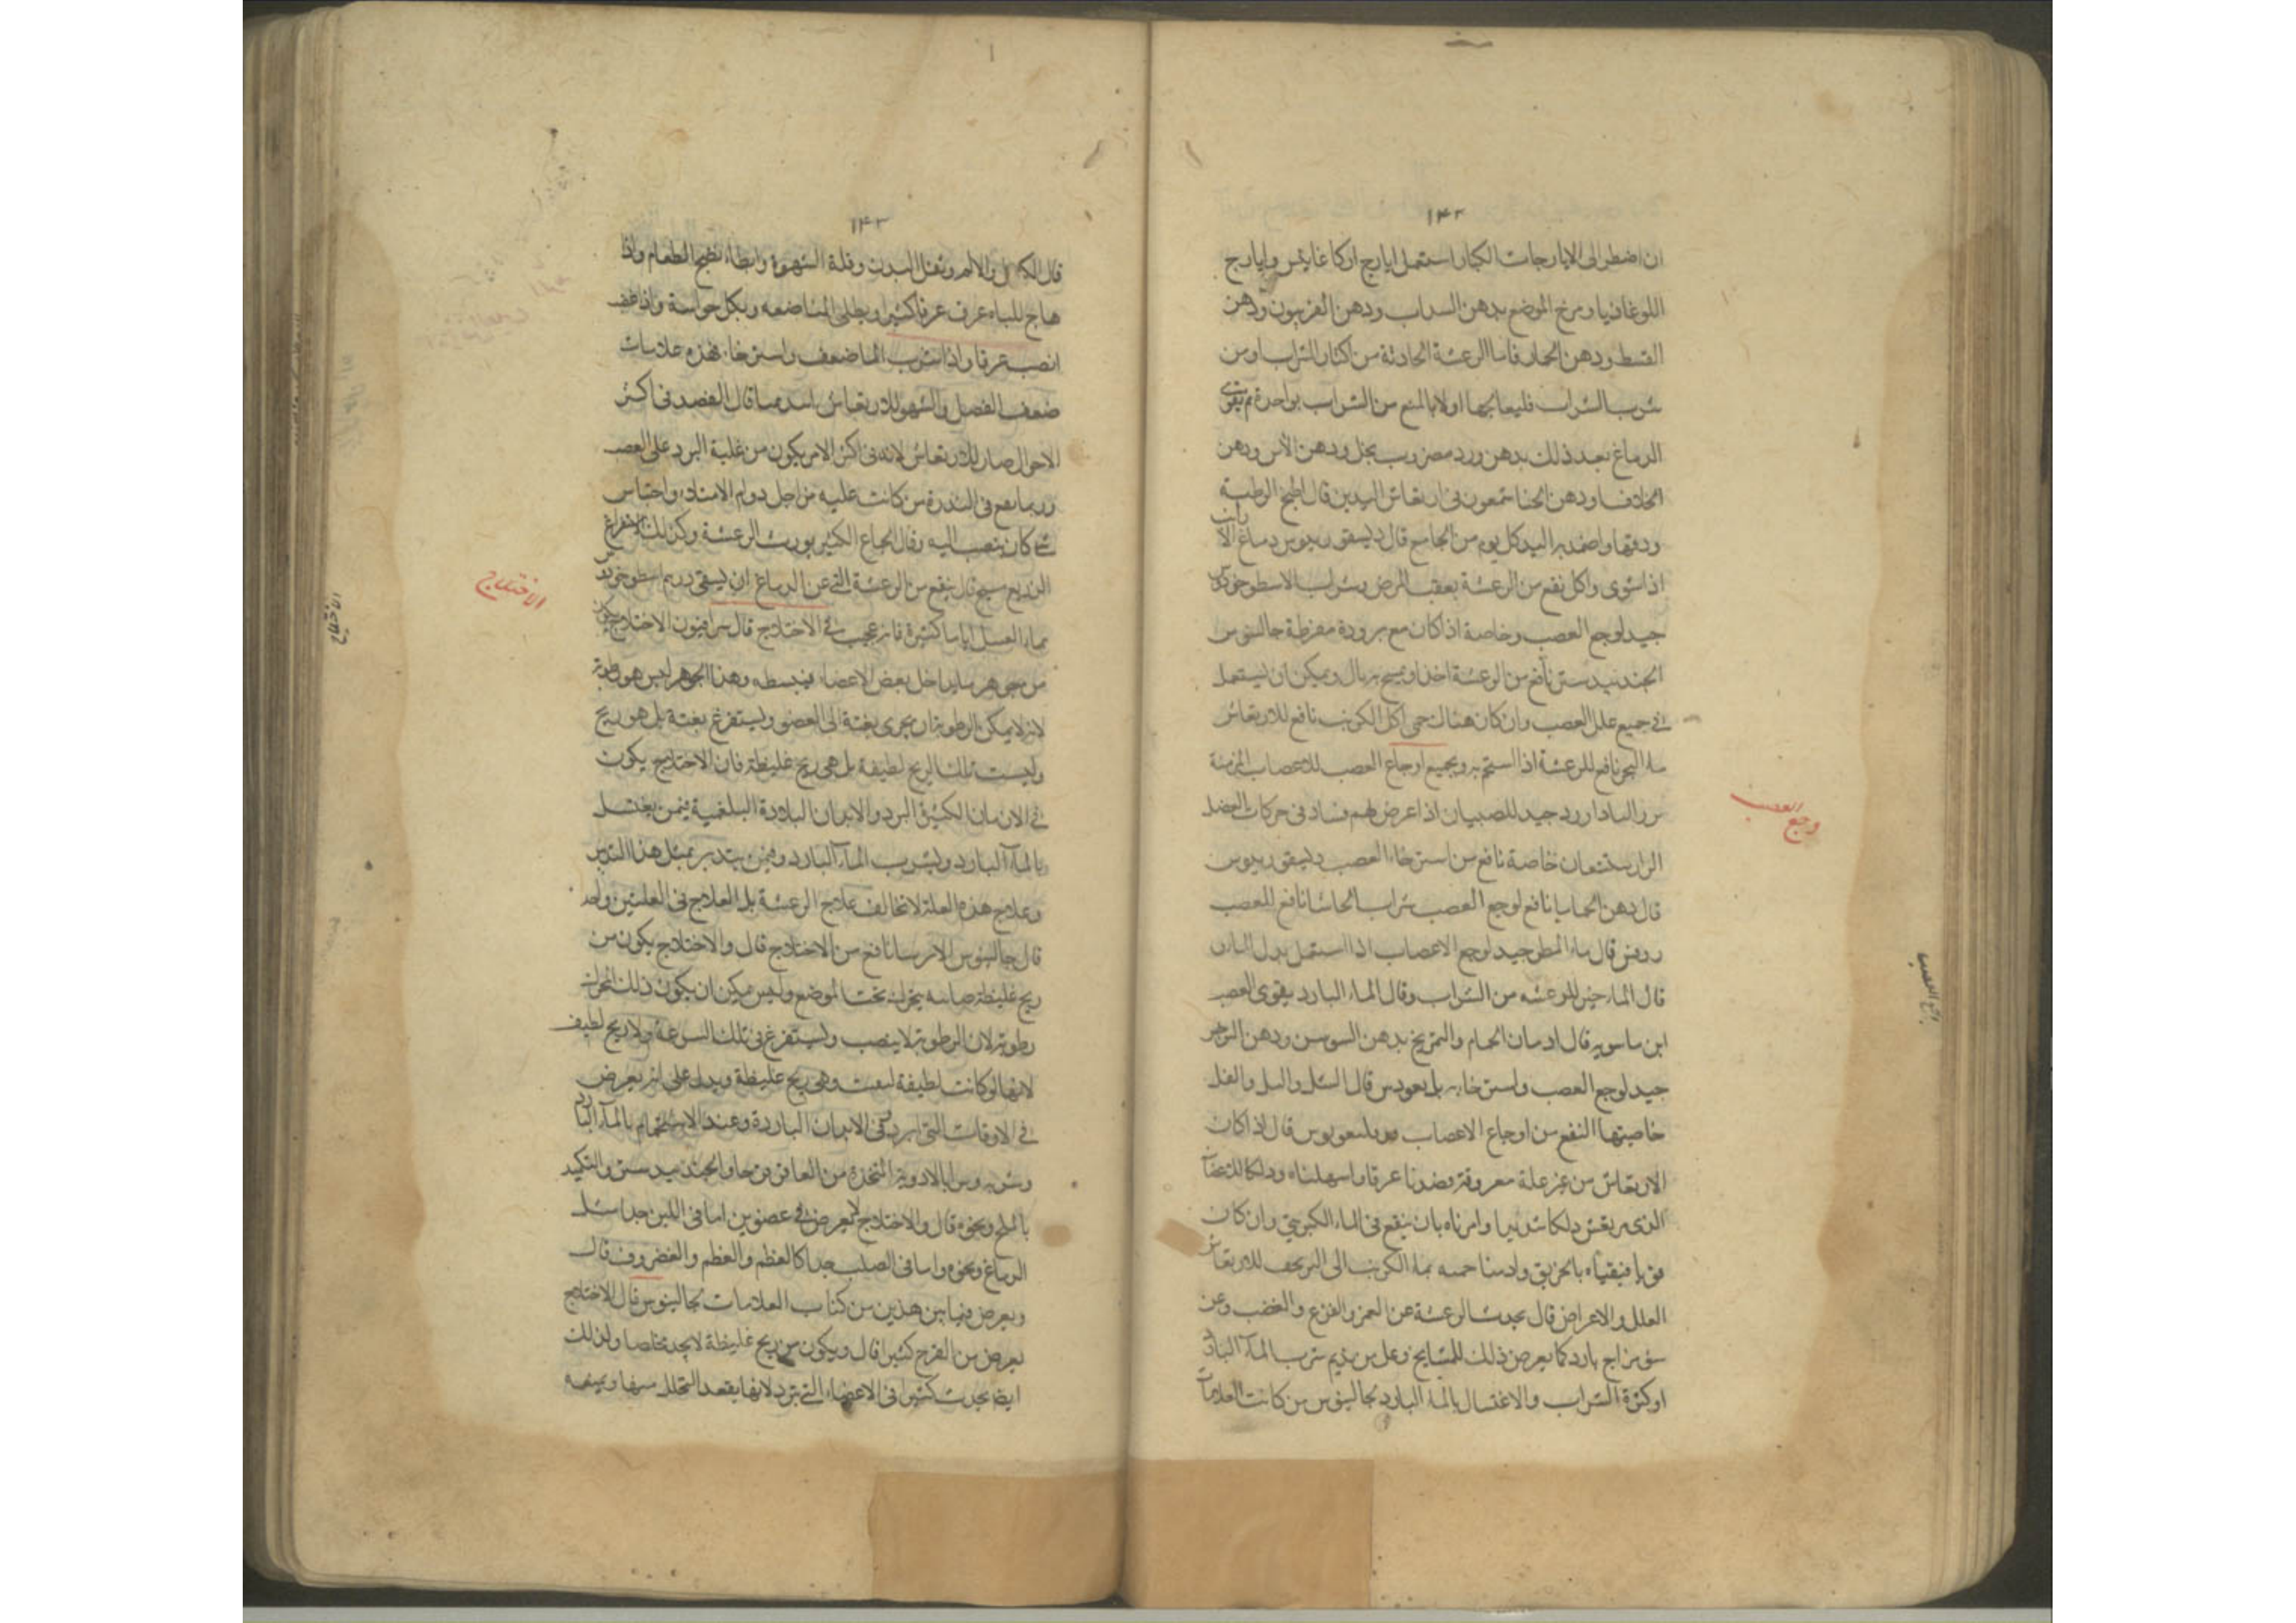 ١٤٢
ان اضطر الى الايارجات الكبار استعمل ايارج اركاغانيس وايارج
اللوغاذيا ومرخ الموضع بدهن السداب ودهن الفربيون ودهن
القسط ودهن الحار فاما الرعشة الحادثة من اكثار الشراب او من
شرب الشراب فليعالجها اولا بالمنع من الشراب بواحدة ثم يقوى
الدماغ بعد ذلك بدهن ورد مضروب بخل ودهن الآس ودهن
الخلاف ودهن الحنا شمعون فى ارتعاش اليدين قال اطبخ الرطبة
ودقها واضمد به اليد كل يوم من الجامع قال ديسقوريدوس دماغ الارنب
اذا شوى واكل نفع من الرعشة بعقب المرض وشراب الاسطوخودوس
جيد لوجع العصب وخاصة اذا كان مع برودة مفرطة جالينوس
الجندبيدستر نافع من الرعشة اخذ او مسح به بال ويمكن ان يستعمل
فى جميع علل العصب وان كان هناك حمى اكل الكرنب نافع للارتعاش
ماء البحر نافع للرعشة اذا استحم به وبجميع اوجاع العصب للاعصاب المزمنة
جيد للصبيان اذا عرض لهم فساد فى حركات العضل
خاصة نافع من استرخاء العصب ديسقوريدوس
قال دهن نافع لوجع العصب شراب الحاشا نافع للعصب
روفس قال ماء المطر جيد لوجع الاعصاب اذا استعمل بدل الماء
قال الماء خير للرعشه من الشراب وقال الماء البارد يقوى العصب
ابن ماسويه قال ادمان الحمام والتمريخ بدهن السوسن ودهن النرجس
جيد لوجع العصب واسترخايه قال
خاصيتها النفع من اوجاع الاعصاب قال اذا كان
الارتعاش من غير علة معروفة فصدنا عرقا واسهلناه ودلكنا الاعضاء
الذى يرتعش دلكا شديدا وامرناه بان ينقع فى الماء الكبريتى وان كان
قويا فيقياه بالخربق الى للارتعاش
العلل والاعراض قال يحدث الرعشة عن الغم والفزع والغضب وعن
سوء مزاج بارد كما يعرض ذلك للمشايخ وعلى من يديم شرب الماء البارد
او كثرة الشراب والاغتسال بالماء البارد جالينوس من كانت العلامات
وجع العصب
وجع العصب
١٤٣
قال الكسل والالم وثقل البدن وقلة الشهوة وابطاء نضج الطعام واذا
هاج للباه عرق عرقا كثيرا وبكل حواسه واذا غضب
انصب عرقا واذا شرب الماء ضعف واسترخا فهذه علامات
ضعف العصب قال الفصد فى اكثر
الاحوال صار للارتعاش لانه فى اكثر الامر يكون من غلبة البرد على العصب
وربما نفع فى الندرة من كانت عليه من اجل دوام الامتلاء واحتباس
شئ كان ينصب اليه وقال الجماع الكثير يورث الرعشة وكذلك الاستفراغ
قال ينفع من الرعشة التى عن الدماغ ان يسقى درهم اسطوخودس
بماء العسل اياما كثيرة فانه عجيب فى الاختلاج قال سرافيون الاختلاج يكون
من جوهر ما يداخل بعض الاعضاء فيبسطه وهذا الجوهر ليس هو رطوبة
لانه لا يمكن الرطوبة ان يجرى بغتة الى العضو ويستفرغ بغتة بل هو ريح
وليست تلك الريح لطيفة بل هى ريح غليظة فان الاختلاج يكون
فى الازمان الكثيرة البرد والابدان الباردة البلغمية فيمن يغتسل
بالماء البارد ويشرب الماء البارد وفيمن يتدبر بمثل هذا التدبير
وعلاج هذه العلة لا تخالف علاج الرعشة بل العلاج فى العلتين واحد
قال جالينوس نافع من الاختلاج قال والاختلاج يكون من
ريح غليظة يتحرك تحت الموضع وليس يمكن ان يكون ذلك المحرك
رطوبة لان الرطوبة لا ينصب ويستفرغ فى تلك السرعة ولا ريح لطيف
لانها لو كانت لطيفة وهى ريح غليظة ويدل على انه يعرض
فى الاوقات التى ابرد وفى الابدان الباردة وعند الاستحمام بالماء البارد
وشربه بالادوية المتخذة من العاقر قرحا والجندبيدستر والتكميد
بالملح ونحوه قال والاختلاج لا يعرض فى عضوين اما فى اللين جدا مثل
الدماغ ونحوه واما فى الصلب جدا كالعظم والعظم والغضروف قال
ويعرض فيما بين هذين من كتاب العلامات لجالينوس قال الاختلاج
يعرض من الفرح كثيرا قال ويكون من ريح غليظة لا يجد مخلصا ولذلك
ايضا يحدث كثيرا فى الاعضاء التى تبرد لانها بفقد التحلل
الاختلاج
الاختلاج